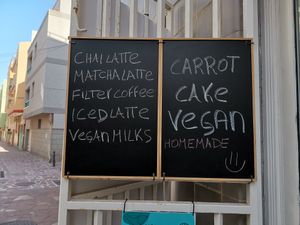 CHAI LATTE
MATCHA LATTE
FILTER COFFEE
ICED LATTE
VEGAN MILKS
CARROT
CAKE
VEGAN
HOMEMADE